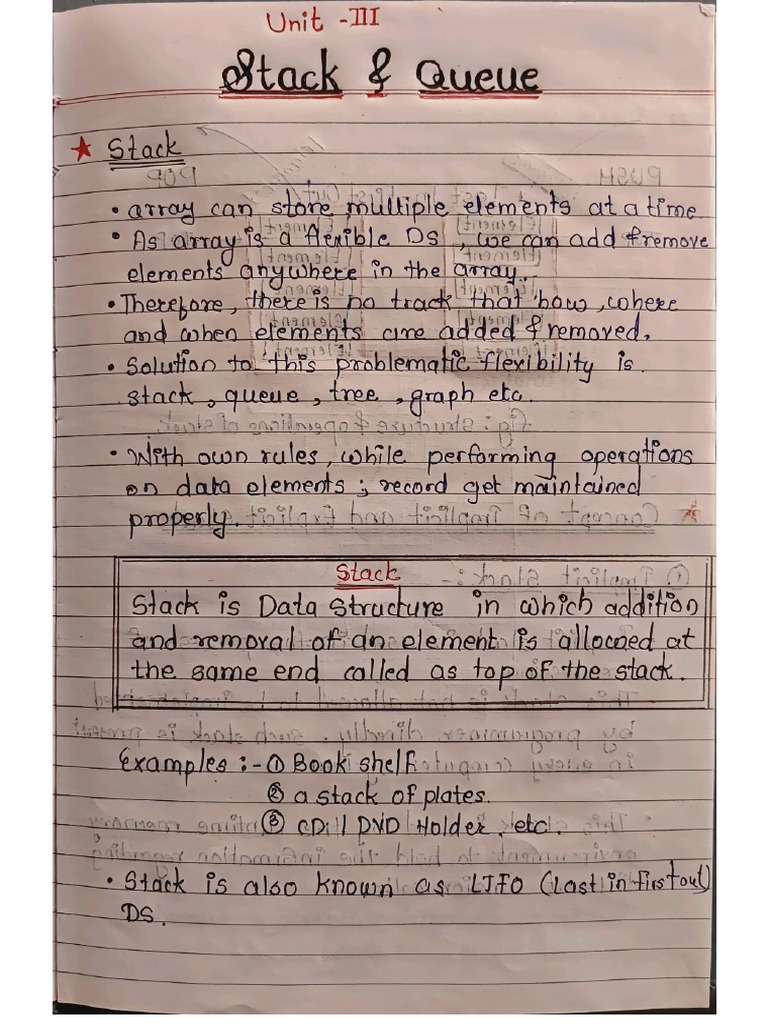 Unit - III
Stack & Queue
★ Stack
• array can store multiple elements at a time.
• As array is a flexible DS, we can add & remove
elements anywhere in the array.
• Therefore, there is no track that how, where
and when elements are added & removed.
• Solution to this problematic flexibility is
stack, queue, tree, graph etc.
• With own rules, while performing operations
on data elements; record get maintained
properly.
Stack
Stack is Data Structure in which addition
and removal of an element is allowed at
the same end called as top of the stack.
Examples :- ① Book shelf
② a stack of plates.
③ CD / DVD Holder, etc.
• Stack is also known as LIFO (Last in first out)
DS.